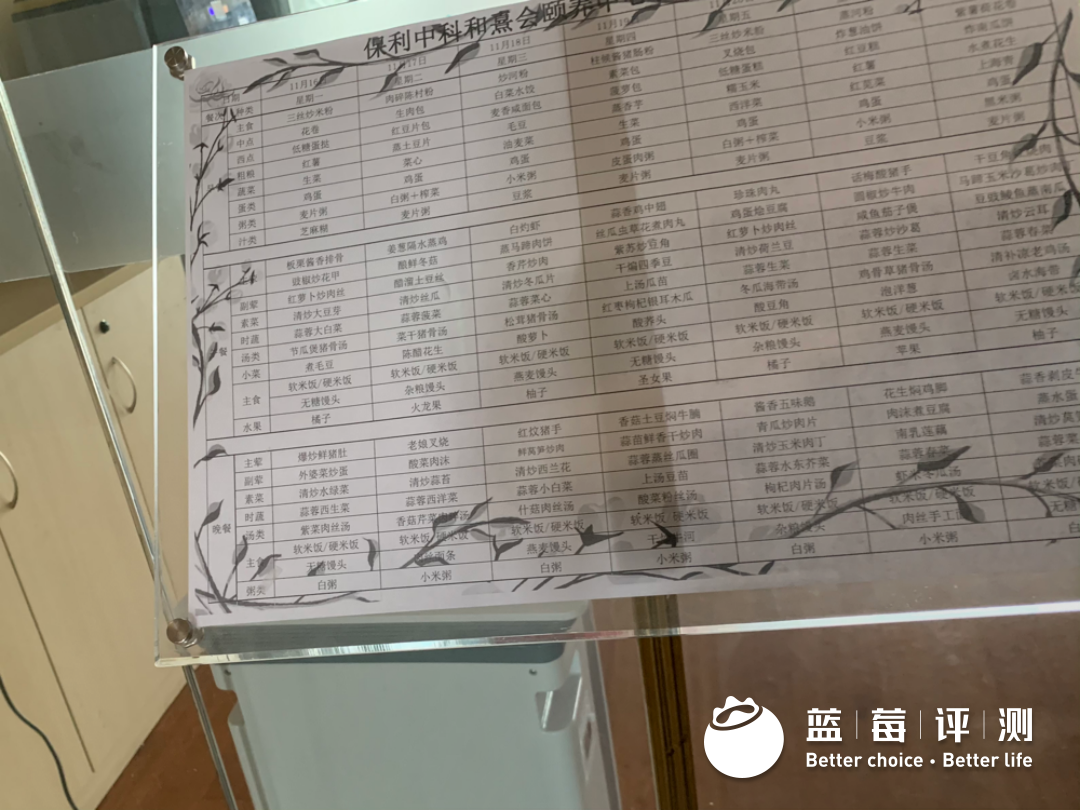 保利中科和熹会颐养中
11月17日 11月18日
星期一 星期二 星期三 星期四 星期五
餐次 种类
主食 三丝炒米粉 肉碎陈村粉 炒河粉 桂候酱猪肠粉 三丝炒米粉 蒸河粉
中点 花卷 生肉包 白菜水饺 素菜包 叉烧包 炸葱油饼 炸南瓜饼
西点 低糖蛋挞 红豆片包 麦香咸面包 菠萝包 低糖蛋糕 红豆糕
粗粮 红薯 蒸土豆片 毛豆 蒸香芋 糯玉米 红薯 水煮花生
蔬菜 生菜 菜心 油麦菜 生菜 西洋菜 红苋菜 上海青
蛋类 鸡蛋 鸡蛋 鸡蛋 鸡蛋 鸡蛋 鸡蛋 鸡蛋
粥类 麦片粥 白粥+榨菜 小米粥 皮蛋肉粥 白粥+榨菜 小米粥 黑米粥
汁类 芝麻糊 麦片粥 豆浆 麦片粥 麦片粥 豆浆 麦片粥
板栗酱香排骨 姜葱隔水蒸鸡 白灼虾 蒜香鸡中翅 珍珠肉丸 话梅酸猪手
豉椒炒花甲 酿鲜冬菇 蒸马蹄肉饼 丝瓜虫草花煮肉丸 鸡蛋烩豆腐 圆椒炒牛肉 马蹄玉米沙葛炒肉
副荤 红萝卜炒肉丝 醋溜土豆丝 香芹炒肉 紫苏炒豆角 红萝卜炒肉丝 咸鱼茄子煲 豆豉鲮鱼蒸南瓜
素菜 清炒大豆芽 清炒丝瓜 清炒冬瓜片 干煸四季豆 清炒荷兰豆 蒜蓉炒沙葛 清炒云耳
时蔬 蒜蓉大白菜 蒜蓉菠菜 蒜蓉菜心 上汤瓜苗 蒜蓉生菜 蒜蓉生菜 蒜蓉春菜
汤类 节瓜煲猪骨汤 菜干猪骨汤 松茸猪骨汤 红枣枸杞银耳木瓜 冬瓜海带汤 鸡骨草猪骨汤 清补凉老鸡汤
小菜 煮毛豆 陈醋花生 酸萝卜 酸荞头 酸豆角 泡洋葱 卤水海带
餐 主食 软米饭/硬米饭 软米饭/硬米饭 软米饭/硬米饭 软米饭/硬米饭 软米饭/硬米饭 软米饭/硬米饭 软米饭/硬米饭
无糖馒头 杂粮馒头 燕麦馒头 无糖馒头 杂粮馒头 燕麦馒头 无糖馒头
水果 橘子 火龙果 柚子 圣女果 橘子 苹果 柚子
主荤 爆炒鲜猪肚 老娘叉烧 红纹猪手 香菇土豆焖牛腩 酱香五味鹅 花生焖鸡脚
副荤 外婆菜炒蛋 酸菜肉沫 鲜莴笋炒肉 蒜苗鲜香干炒肉 青瓜炒肉片 肉沫煮豆腐 蒸水蛋
素菜 清炒水绿菜 清炒蒜苔 清炒西兰花 蒜蓉蒸丝瓜圈 清炒玉米肉丁 南乳莲藕
时蔬 蒜蓉西生菜 蒜蓉西洋菜 蒜蓉小白菜 上汤豆苗 蒜蓉水东芥菜 蒜蓉春菜
晚餐 汤类 紫菜肉丝汤 什菇肉丝汤 酸菜粉丝汤 枸杞肉片汤 虾米冬瓜汤
主食 软米饭/硬米饭 软米饭/硬米饭 软米饭/硬米饭 软米饭/硬米饭 软米饭/硬米饭 软米饭/硬米饭
无糖馒头 燕麦馒头 杂粮馒头
粥类 白粥 小米粥 白粥 小米粥 白粥 小米粥 白
蓝莓评测
Better choice · Better life